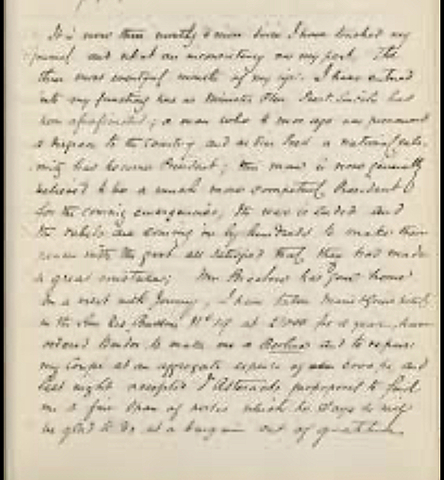 It is now three months & more since I have touched my
journal and what an inconsistency on my part. The
three most eventful months of my life. I have entered
into my functions here as Minister Plen. Prest. Lincoln has
been assassinated; a man who 6 mos ago was pronounced
a disgrace to the country and at his Insd a national cala-
mity has become President; this man is now generally
believed to be a much more competent President
for the coming emergencies, The war is ended and
the rebels are coming in by hundreds to make their
peace with the govt all satisfied that they had made
a great mistake; Mr has gone home
on a visit with Jenny, I have taken Hotel
in the Rue No 19 at for a year, have
ordered Binder to make me a and to repair
my Coupe at an aggregate expense of and
last night accepted proposal to find
me a fine span of horses which he says he will
be glad to do at a bargain out of gratitude